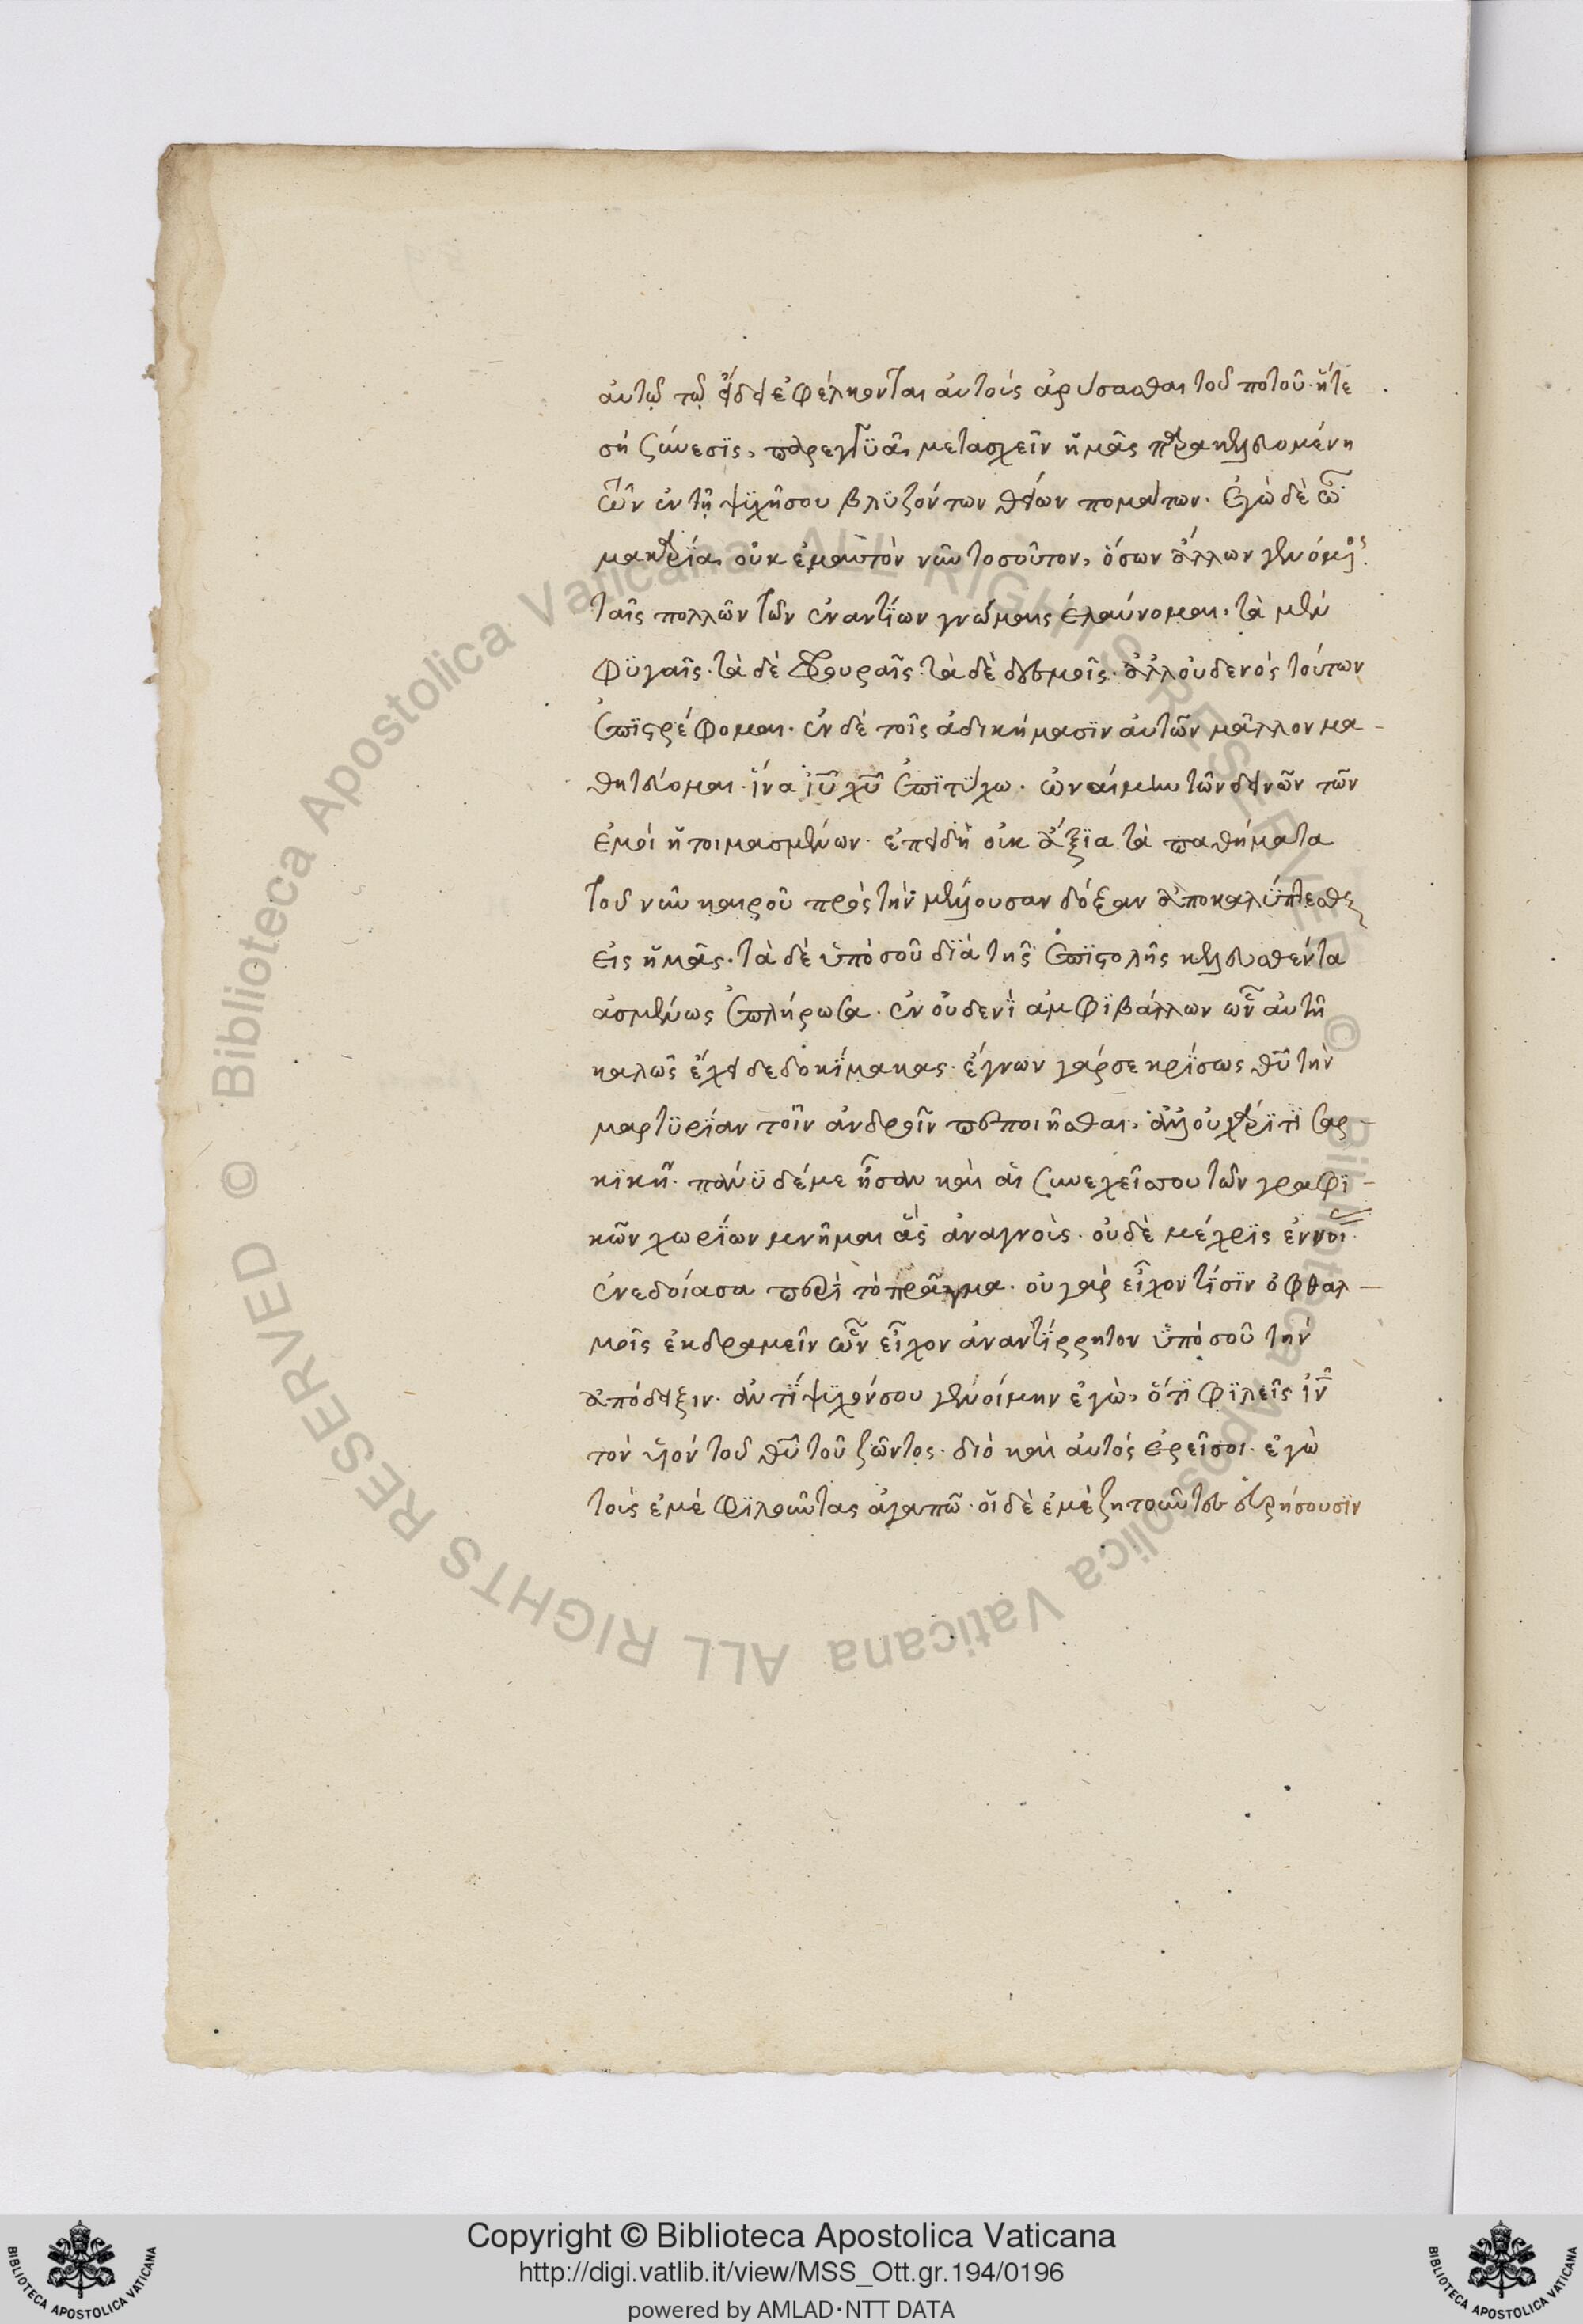 αὐτῷ τῷ εἴδει ἐφέλκονται αὐτοὺς ἀρύσασθαι τοῦ ποτοῦ. ἥ τε
σὴ σύνεσϊς, παρεγγϋᾶ, μετασχεῖν ἡμᾶς παρακελευομένη
ὧν ἐν τῇ ψϋχῇ σου βλϋζόντων θείων πομάτων. ἐγὼ δὲ ὦ
μακαρία, οὐκ ἐμαυτὸν νῦν τοσοῦτον, ὅσων ἄλλων γενόμενος
ταῖς πολλῶν τῶν ἐναντίων γνώμαις ἐλαύνομαι, τὰ μὲν
φϋγαῖς. τὰ δὲ φρουραῖς. τὰ δὲ δεσμοῖς. ἀλλ' οὐδενὸς τούτων
ἐπϊστρέφομαι. ἐν δὲ τοῖς ἀδικήμασϊν αὐτῶν μᾶλλον μα-
θητεύομαι. ἵνα ἰυ χυ ἐπϊτύχω. ὠναίμην τῶν δεινῶν τῶν
ἐμοὶ ἡτοιμασμένων. ἐπειδὴ οὐκ ἄξϊα τὰ παθήματα
τοῦ νῦν καιροῦ πρὸς τὴν μέλλουσαν δόξαν ἀποκαλύπτεσθαι
εἰς ἡμᾶς. τὰ δὲ ὑπό σοῦ δϊὰ τῆς ἐπϊστολῆς κελευσθέντα
ἀσμένως ἐπλήρωσα. ἐν οὐδενὶ ἀμφϊβάλλων ὧν αὐτὴ
καλῶς ἔχει δεδοκίμακας. ἔγνων γάρ σε κρίσεως θυ τὴν
μαρτϋρίαν τοῖν ἀνδροῖν πεποιῆσθαι, ἀλλ' οὐ χάρϊτϊ σαρ-
κϊκῇ. πάνϋ δέ με ἦσαν καὶ αἱ συνεχεῖς σου τῶν γραφϊ-
κῶν χωρίων μνῆμαι ἃς ἀναγνοὺς. οὐδὲ μέχρϊς ἐννοι
ἐνεδοίασα περὶ τὸ πρᾶγμα. οὐ γὰρ εἶχον τίσϊν ὀφθαλ-
μοῖς ἐκδραμεῖν ὧν εἶχον ἀναντίρρητον ὑπό σοῦ τὴν
ἀπόδειξιν. ἀντίψϋχόν σου γενοίμην ἐγὼ, ὅτϊ φϊλεῖς ἰν
τὸν υἱὸν τοῦ θυ τοῦ ζῶντος. διὸ καὶ αὐτὸς ἐρεῖ σοι. ἐγὼ
τοὺς ἐμὲ φϊλοῦντας ἀγαπῶ. οἱ δὲ ἐμὲ ζητοῦντες εὑρήσουσϊν
Copyright © Biblioteca Apostolica Vaticana
http://digi.vatlib.it/view/MSS_Ott.gr.194/0196
powered by AMLAD·NTT DATA
BIBLIOTECA APOSTOLICA VATICANA
BIBLIOTECA APOSTOLICA VATICANA
© Biblioteca Apostolica Vaticana ALL RIGHTS RESERVED
© Biblioteca Apostolica Vaticana ALL RIGHTS RESERVED